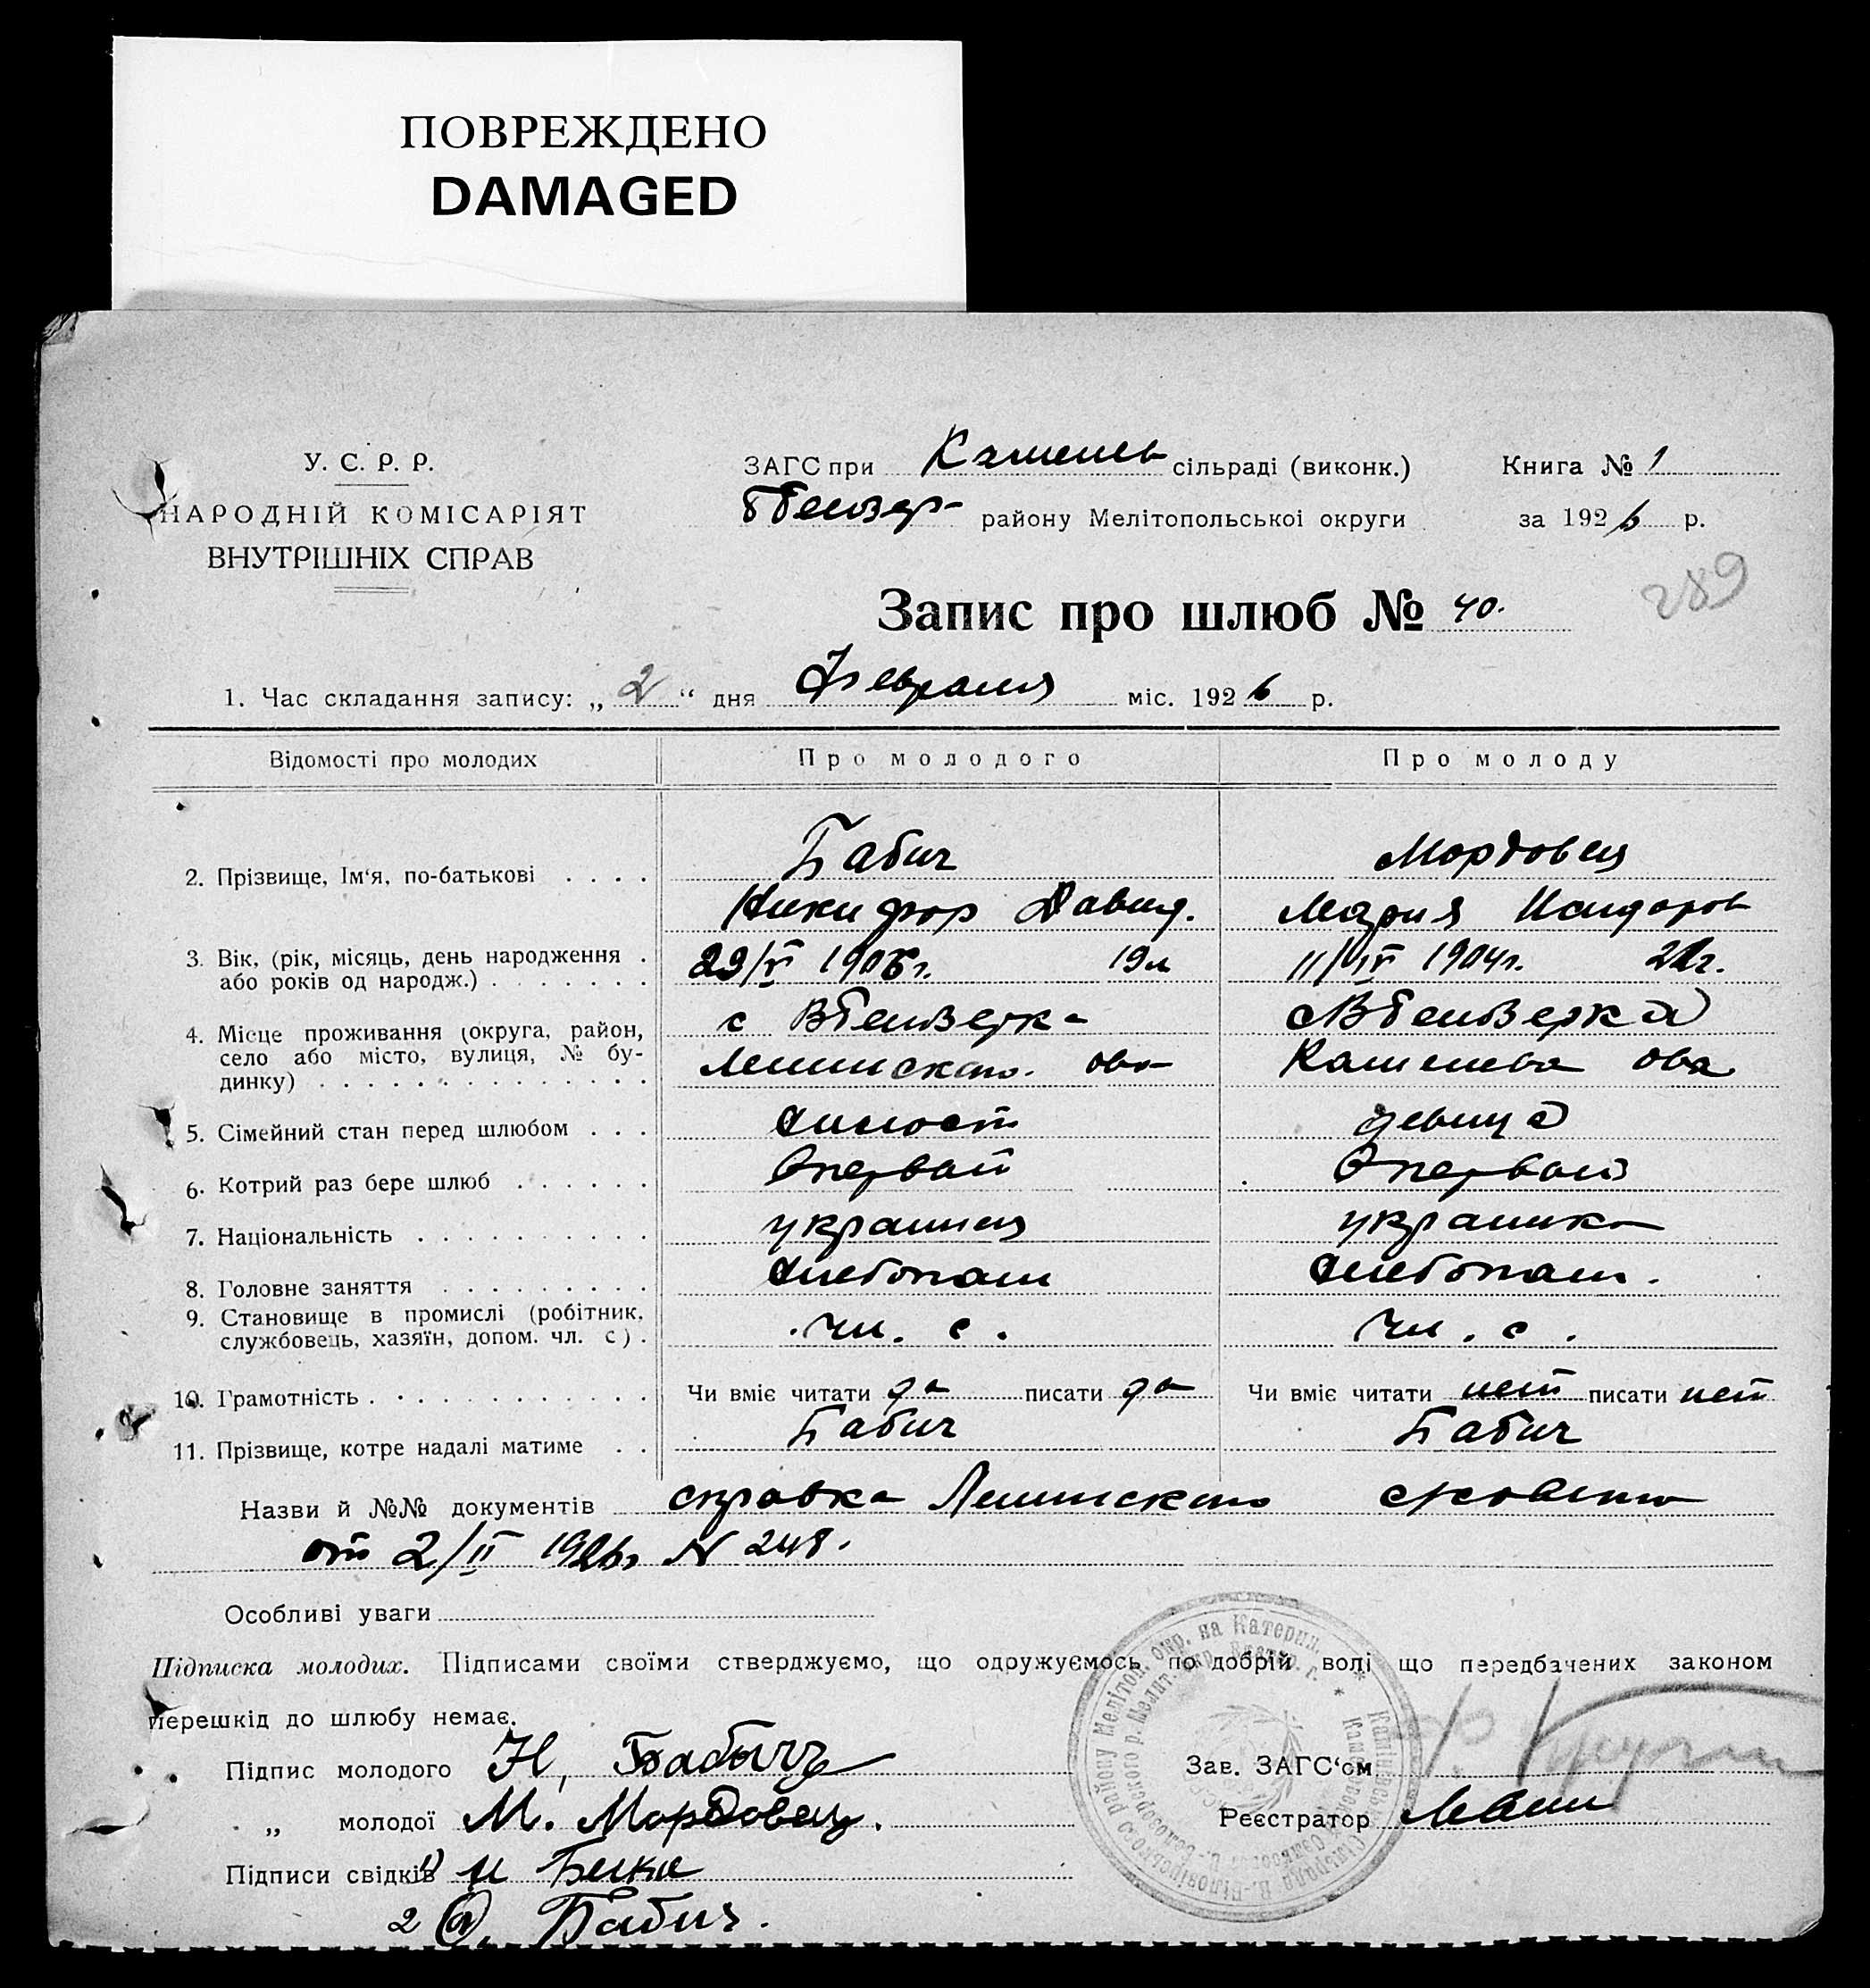 ПОВРЕЖДЕНО
DAMAGED
У. С. Р. Р.
НАРОДНІЙ КОМІСАРІЯТ
ВНУТРІШНІХ СПРАВ
ЗАГС при Каменев сільраді (виконк.)
району Мелітопольської округи
Книга № 1
за 1926 р.
289
Запис про шлюб № 40.
1. Час складання запису: „ 2 “ дня Февраля міс. 1926 р.
Відомості про молодих Про молодого Про молоду
2. Прізвище, Ім‘я, по-батькові . . . . Бабич Мордовец
Никифор Давид. Мария Исидоров
3. Вік, (рік, місяць, день народження . 29/V 1906г. 19л 11/IV 1904г. 21г.
або років од народж.) . . . . . . .
4. Місце проживання (округа, район, с ВБелозерка с ВБелозерка
село або місто, вулиця, № бу-
динку) . . . . . . . . . . . . . Ленинского. ова Каменева ова
5. Сімейний стан перед шлюбом . . . холост девица
6. Котрий раз бере шлюб . . . . . . Первый Первый
7. Національність . . . . . . . . . . украинец украинка
8. Головне заняття . . . . . . . . . хлебопаш хлебопаш.
9. Становище в промислі (робітник,
службовець, хазяїн, допом. чл. с) . чл. с. чл. с.
10. Грамотність . . . . . . . . . . . Чи вміє читати да писати да Чи вміє читати нет писати нет
11. Прізвище, котре надалі матиме . . Бабич Бабич
Назви й №№ документів справка Ленинского
от 2/II 1926г N 248.
Особливі уваги
Підписка молодих. Підписами своїми стверджуємо, що одружуємось по добрій волі що передбачених законом
перешкід до шлюбу немає.
Підпис молодого Н, Бабычъ
Зав. ЗАГС‘ом
„ молодої М. Мордовец.
Реєстратор
Підписи свідків
2 Бабич.